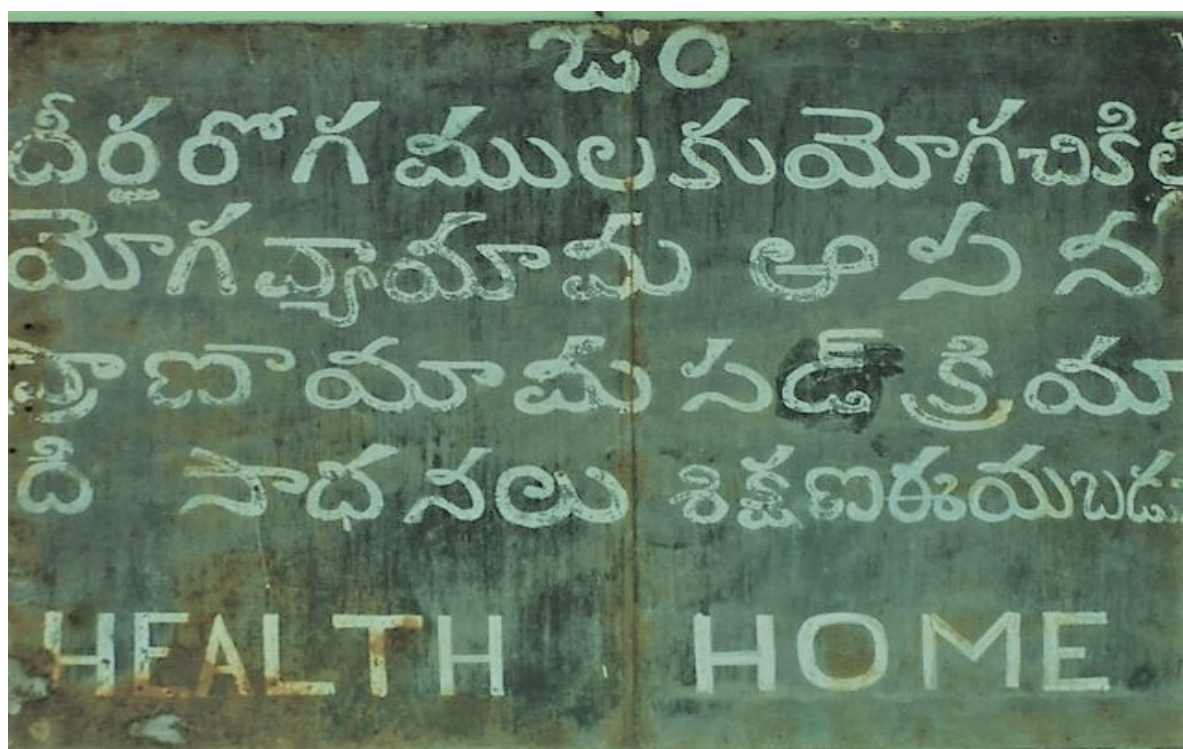 ఓం
దీర్ఘరోగములకుయోగచికిత్స
యోగవ్యాయామ ఆసన
ప్రాణాయామ సడ్ క్రియా
ది సాధనలు శిక్షణఈయబడు
HEALTH HOME